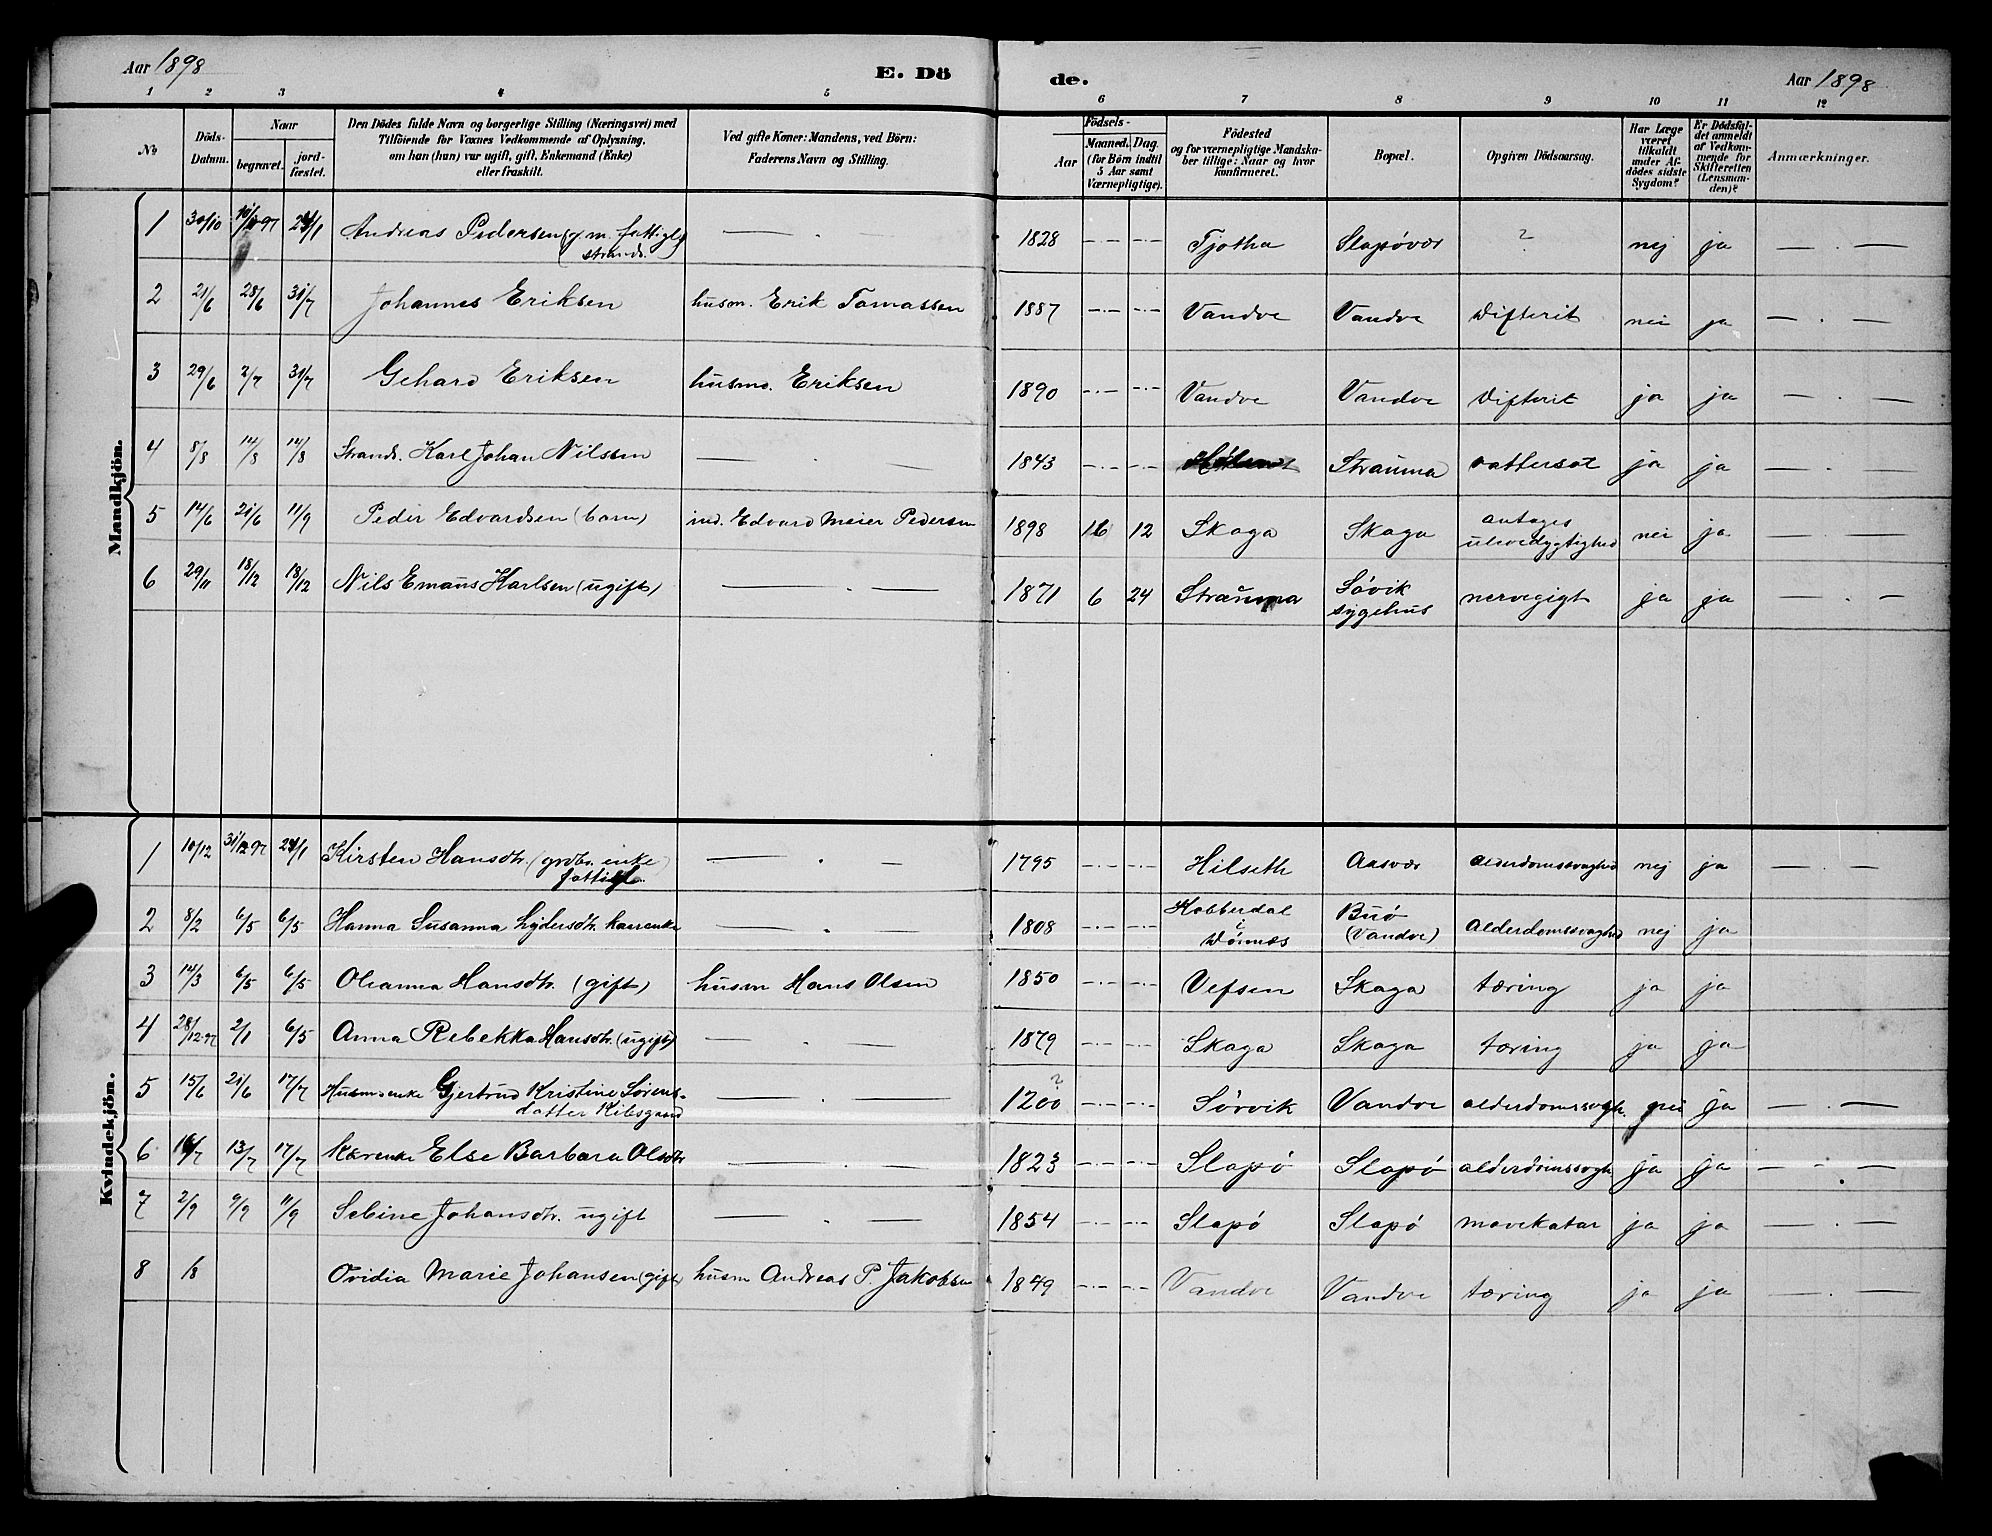 Aar 1898
E. Dö
de.
Aar 1898
1 2 3 4 5 6 7 8 9 10 11 12
No.
Döds-Datum.
Naar
begravet.
jord-fæstet.
Den Dödes fulde Navn og borgerlige Stilling (Næringsvei) med
Tilföiende for Voxnes Vedkommende af Oplysning,
om han (hun) var ugift, gift, Enkemand (Enke)
eller fraskilt.
Ved gifte Koner: Mandens, ved Börn:
Faderens Navn og Stilling.
Födsels-
Aar
Maaned. Dag.
(for Börn indtil
5 Aar samt
Værnepligtige).
Födested
og for værnepligtige Mandska-
ber tillige: Naar og hvor
konfirmeret.
Bopæl.
Opgiven Dödsaarsag.
Har Læge
været
tilkaldt
under Af-
dödes sidste
Sygdom?
Er Dödsfal-
det anmeldt
af Vedkom-
mende for
Skifteretten
(Lensman-
den)?
Anmærkninger.
Mandkjön.
1 30/10 Andreas Pedersen (g m. fattigl. strands.) — . — 1828 —.— —.— Tjotha Slapövær ? nej ja — . —
2 21/6 28/6 31/7 Johannes Eriksen husm. Erik Tomassen 1887 —.— —.— Vandve Vandve Difterit nei ja — . —
3 29/6 2/7 31/7 Gehard Eriksen husmd. Eriksen 1890 —.— —.— Vandve Vandve Difterit ja ja — . —
4 8/8 14/8 14/8 Strands. Karl Johan Nilssen — . — 1843 —.— —.— Strauma vattersot ja ja — .
5 14/6 21/6 11/9 Peder Edvardsen (barn) ind. Edvard Meier Pedersen 1898 12 Skaga Skaga antages ulevedygtighed nei ja — . —
6 29/11 18/12 18/12 Nils Emaus Karlsen (ugift) — . — 1871 6 24 Strauma Søvik sygehus nervegigt ja ja — . —
Kvindekjön.
1 10/12 31/12 97 Kirsten Hansdtr. (grdbr. enke) fattigl. — . — 1795 —.— —.— Hilseth Aasvær alderdomssvaghed nej ja — . —
2 8/2 6/5 6/5 Hanna Susanna Lydersdtr. kaarenke — . — 1808 —.— —.— Kobberdal i Dönnæs Buö (Vandve) alderdomssvaghed nej ja
3 14/3 6/5 6/5 Oleanna Hansdtr. (gift) husm Hans Olsen 1850 —.— —.— Vefsen Skaga tæring ja ja
4 28/12-97 2/1 6/5 Anna Rebekka Hansdtr. (ugift) — . — 1879 —.— —.— Skaga Skaga tæring ja ja
5 15/6 21/6 17/7 Husmsenke Gjertrud Kristine Sørens-
datter Kibsgaard — . — 1200 ? —.— —.— Sörvik Vandve alderdomssvagh. nei ja — . —
6 13/7 17/7 Kaarenke Else Barbara Olsdtr — . — 1823 —.— —.— Slapö Slapö alderdomssvgh ja ja — - —
7 2/9 9/9 11/9 Sebine Johansdtr. ugift — . — 1854 —.— —.— Slapö Slapö mavekatar ja ja — . —
8 /8 Ovidia Marie Johansen (gift) husm Andreas P. Jakobsen 1849 —.— —.— Vandve Vandve tæring ja ja — . —